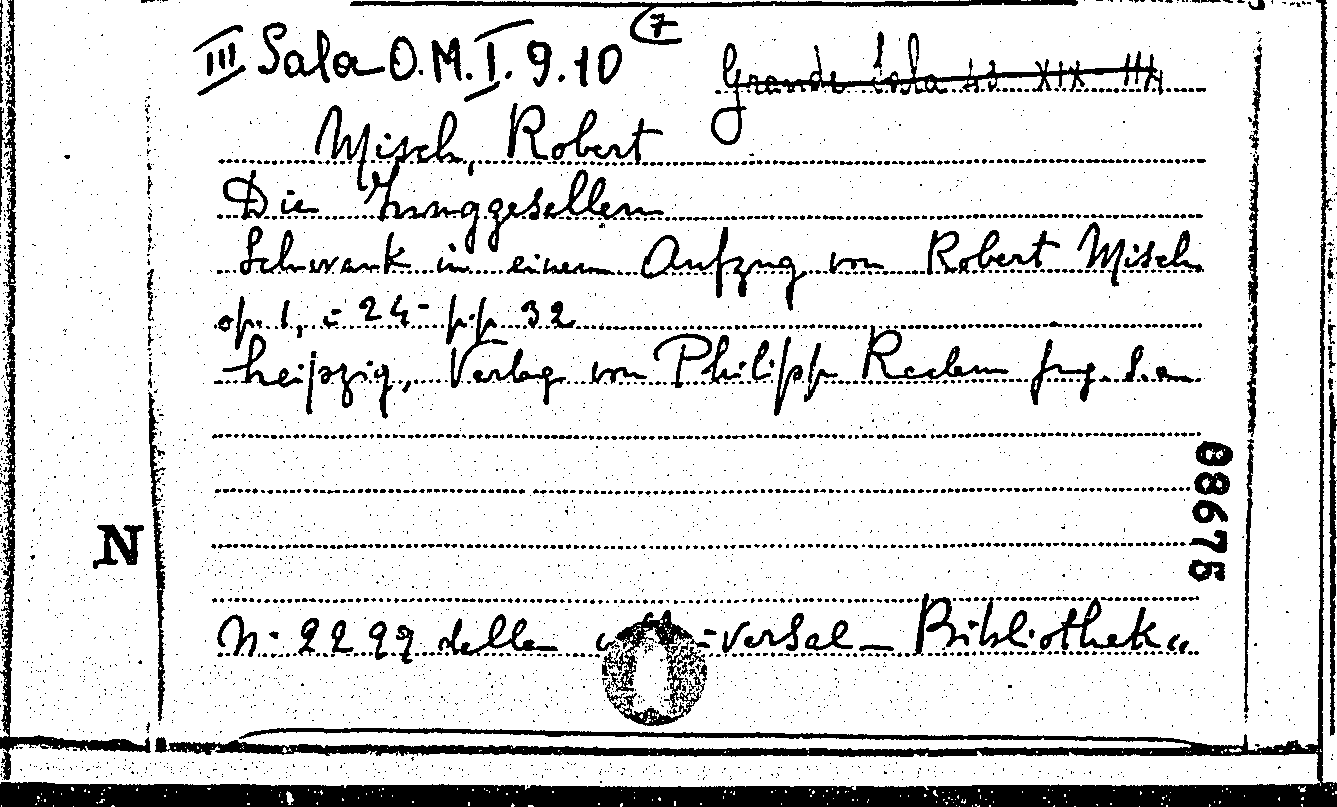 III Sala O.M.I.9.10 (7
Grande Sala 43 XIX
Misch, Robert
Die Junggesellen
Schwank in einem Aufzug von Robert Misch
op. 1, = 24- pp 32
Leipzig, Verlag von Philipp Reclam jug. s.a.
N
08675
N. 2299 della -versal-Bibliothek"